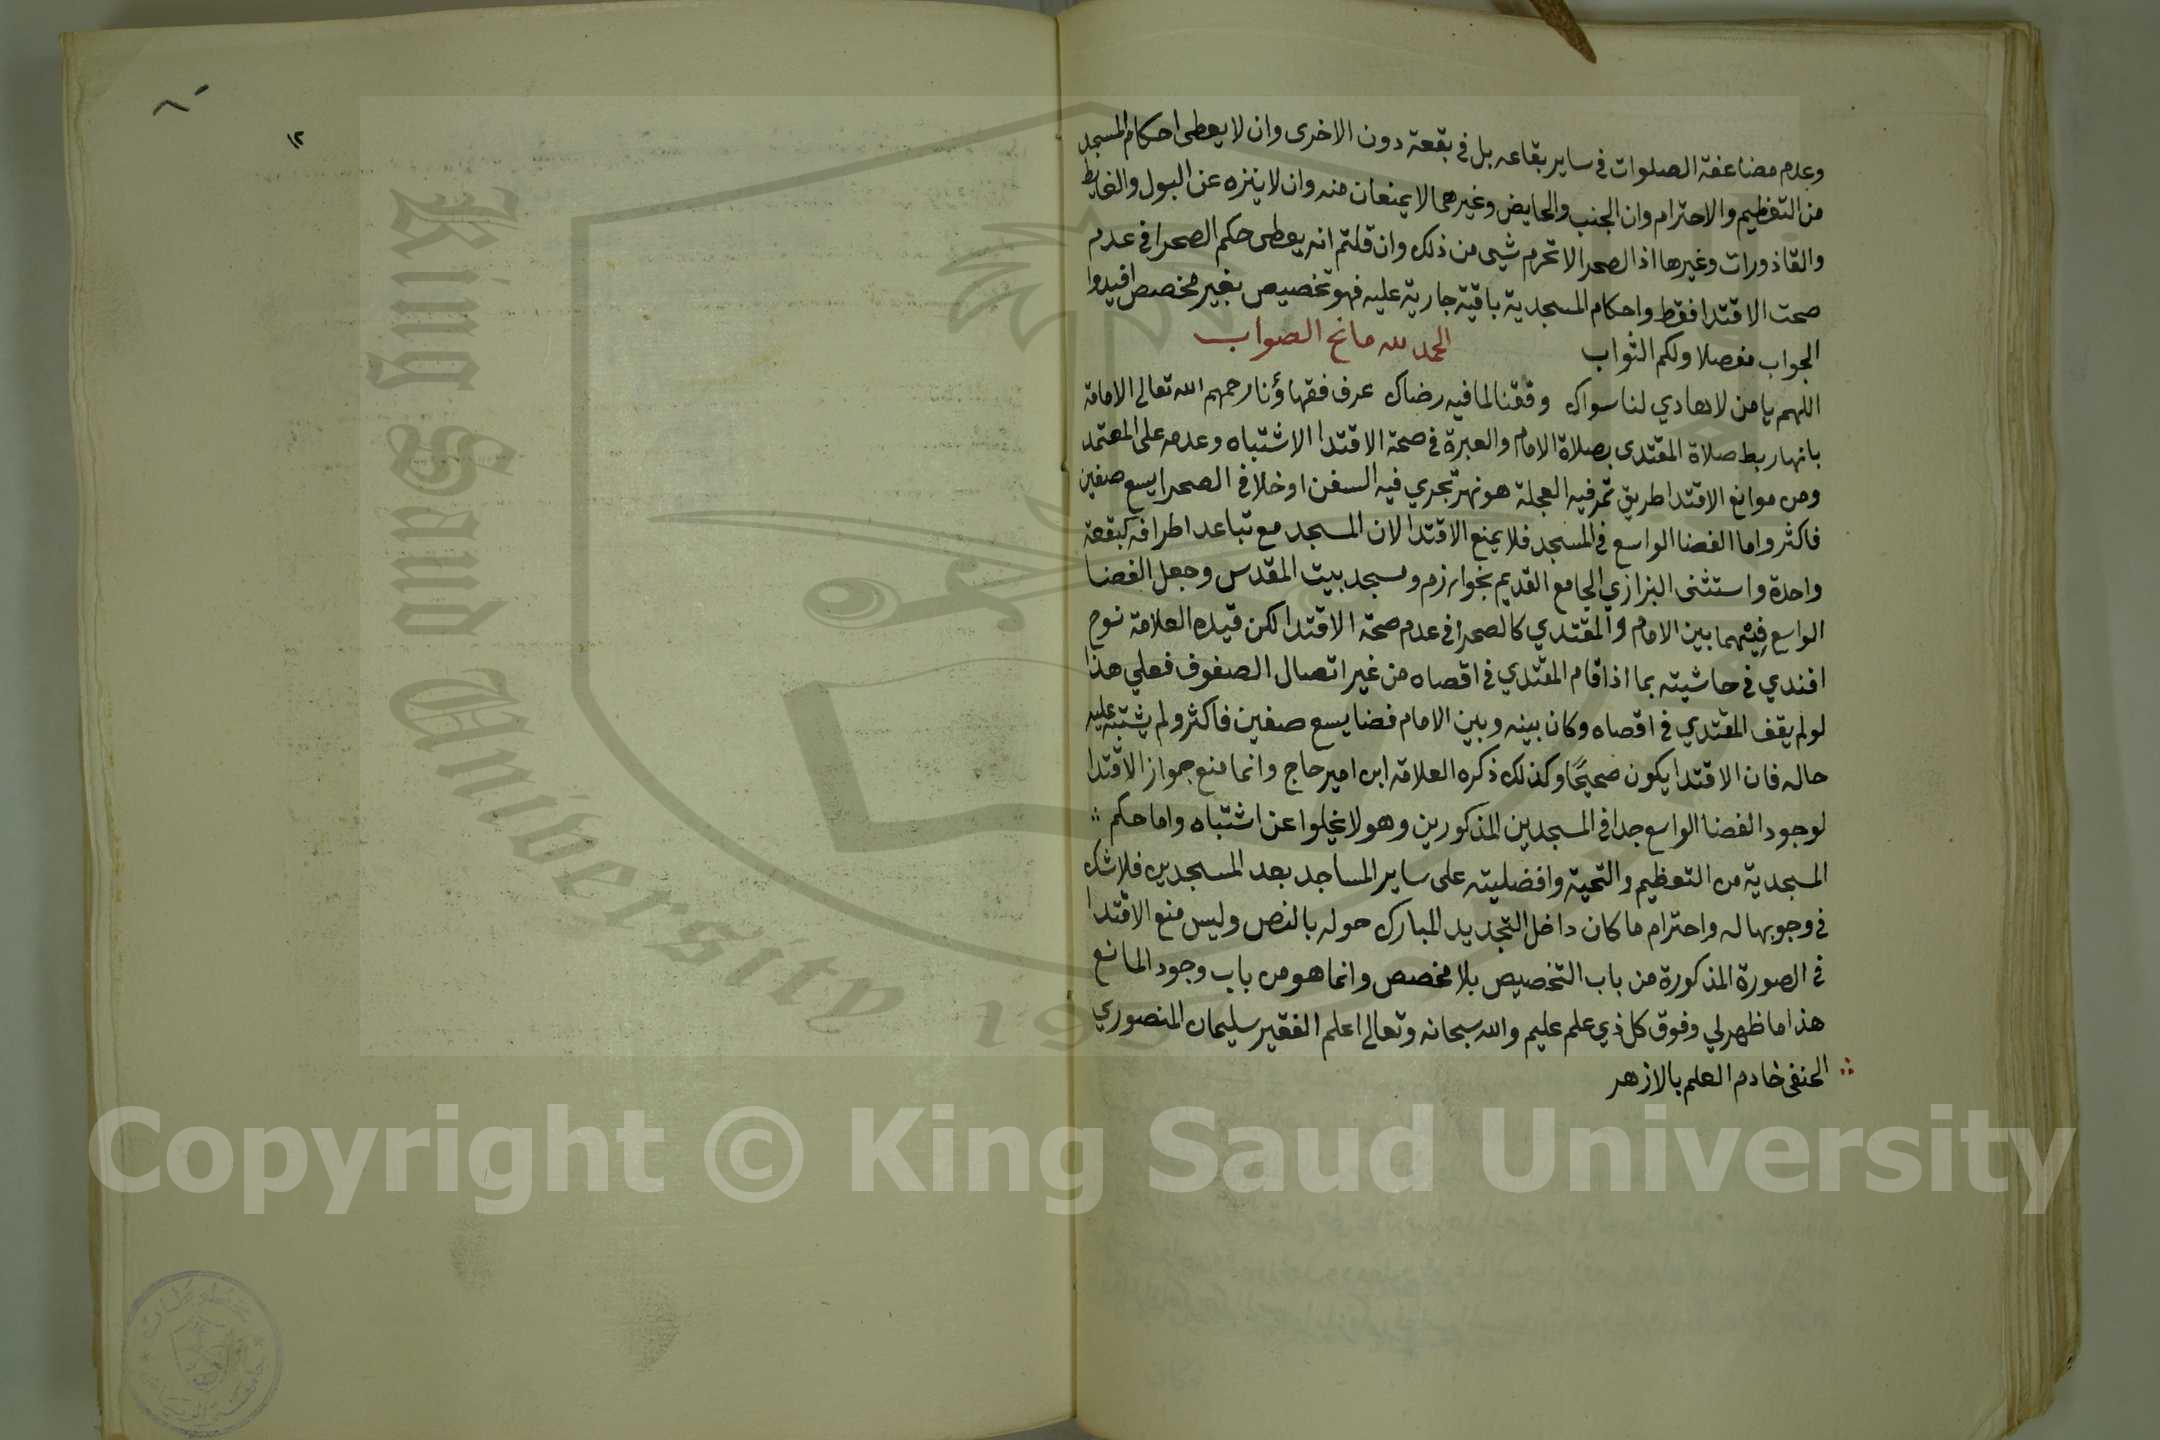 وعدم مضاعفة الصلوات في ساير بقاعه بل في بقعة دون الاخرى وان لا يعطى احكام المسجد
من التعظيم والاحترام وان الجنب والحايض وغيرهما لا يمنعان منه وان لا ينزه عن البول والغايط
والقاذورات وغيرها اذ الصحرا لا تحرم شيى من ذلك وان قلتم انه يعطى حكم الصحرا في عدم
صحت الاقتدا فقط واحكام المسجدية باقية جارية عليه فهو تخصيص بغير مخصص افيدوا
الجواب مفصلا ولكم الثواب الحمد لله مانح الصواب
اللهم يا من لا هادي لنا سواك وفقنا لما فيه رضاك عرف فقهاؤنا رحمهم الله تعالى الامامة
بانها ربط صلاة المقتدى بصلاة الامام والعبرة في صحة الاقتدا الاشتباه وعدمه على المعتمد
ومن موانع الاقتدا طريق تمر فيه العجلة هو نهر تجري فيه السفن او خلا في الصحرا يسع صفين
فاكثر واما الفضا الواسع في المسجد فلا يمنع الاقتدا لان المسجد مع تباعد اطرافه كبقعة
واحدة واستثنى البزازي الجامع القديم بخوارزم ومسجد بيت المقدس وجعل الفضا
الواسع فيهما بين الامام والمقتدي كالصحرا في عدم صحة الاقتدا لكن قيده العلامة نوح
افندي في حاشيته بما اذا قام المقتدي في اقصاه من غير اتصال الصفوف فعلي هذا
لو لم يقف المقتدي في اقصاه وكان بينه وبين الامام فضا يسع صفين فاكثر ولم يشتبه عليه
حاله فان الاقتدا يكون صحيحًا وكذلك ذكره العلامة ابن امير حاج وانما منع جواز الاقتدا
لوجود الفضا الواسع جدا في المسجدين المذكورين وهو لا يخلوا عن اشتباه واما حكم
المسجدية من التعظيم والتحية وافضليته على ساير المساجد بعد المسجدين فلا شك
في وجوبها له واحترام ما كان داخل التجديد المبارك حوله بالنص وليس منع الاقتدا
في الصورة المذكورة من باب التخصيص بلا مخصص وانما هو من باب وجود المانع
هذا ما ظهر لي وفوق كل ذي علم عليم والله سبحانه وتعالى اعلم الفقير سليمان المنصوري
الحنفى خادم العلم بالازهر
١٢
King Saud University 195
Copyright © King Saud University